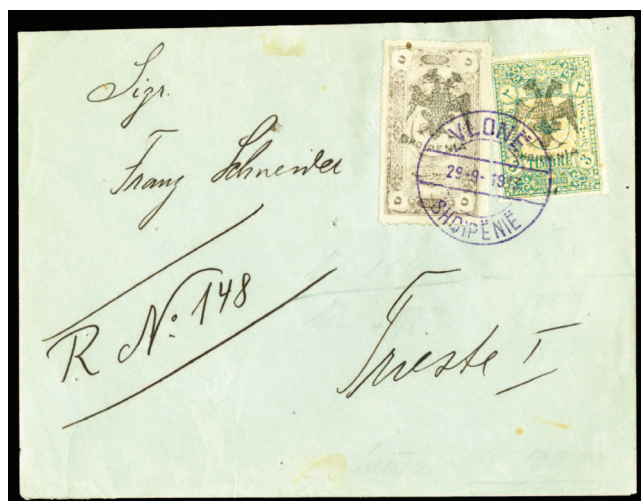 Sigr.
Franz Schneider
R No. 148
Trieste I
VLONË
29-9-19
SHQIPËNIË